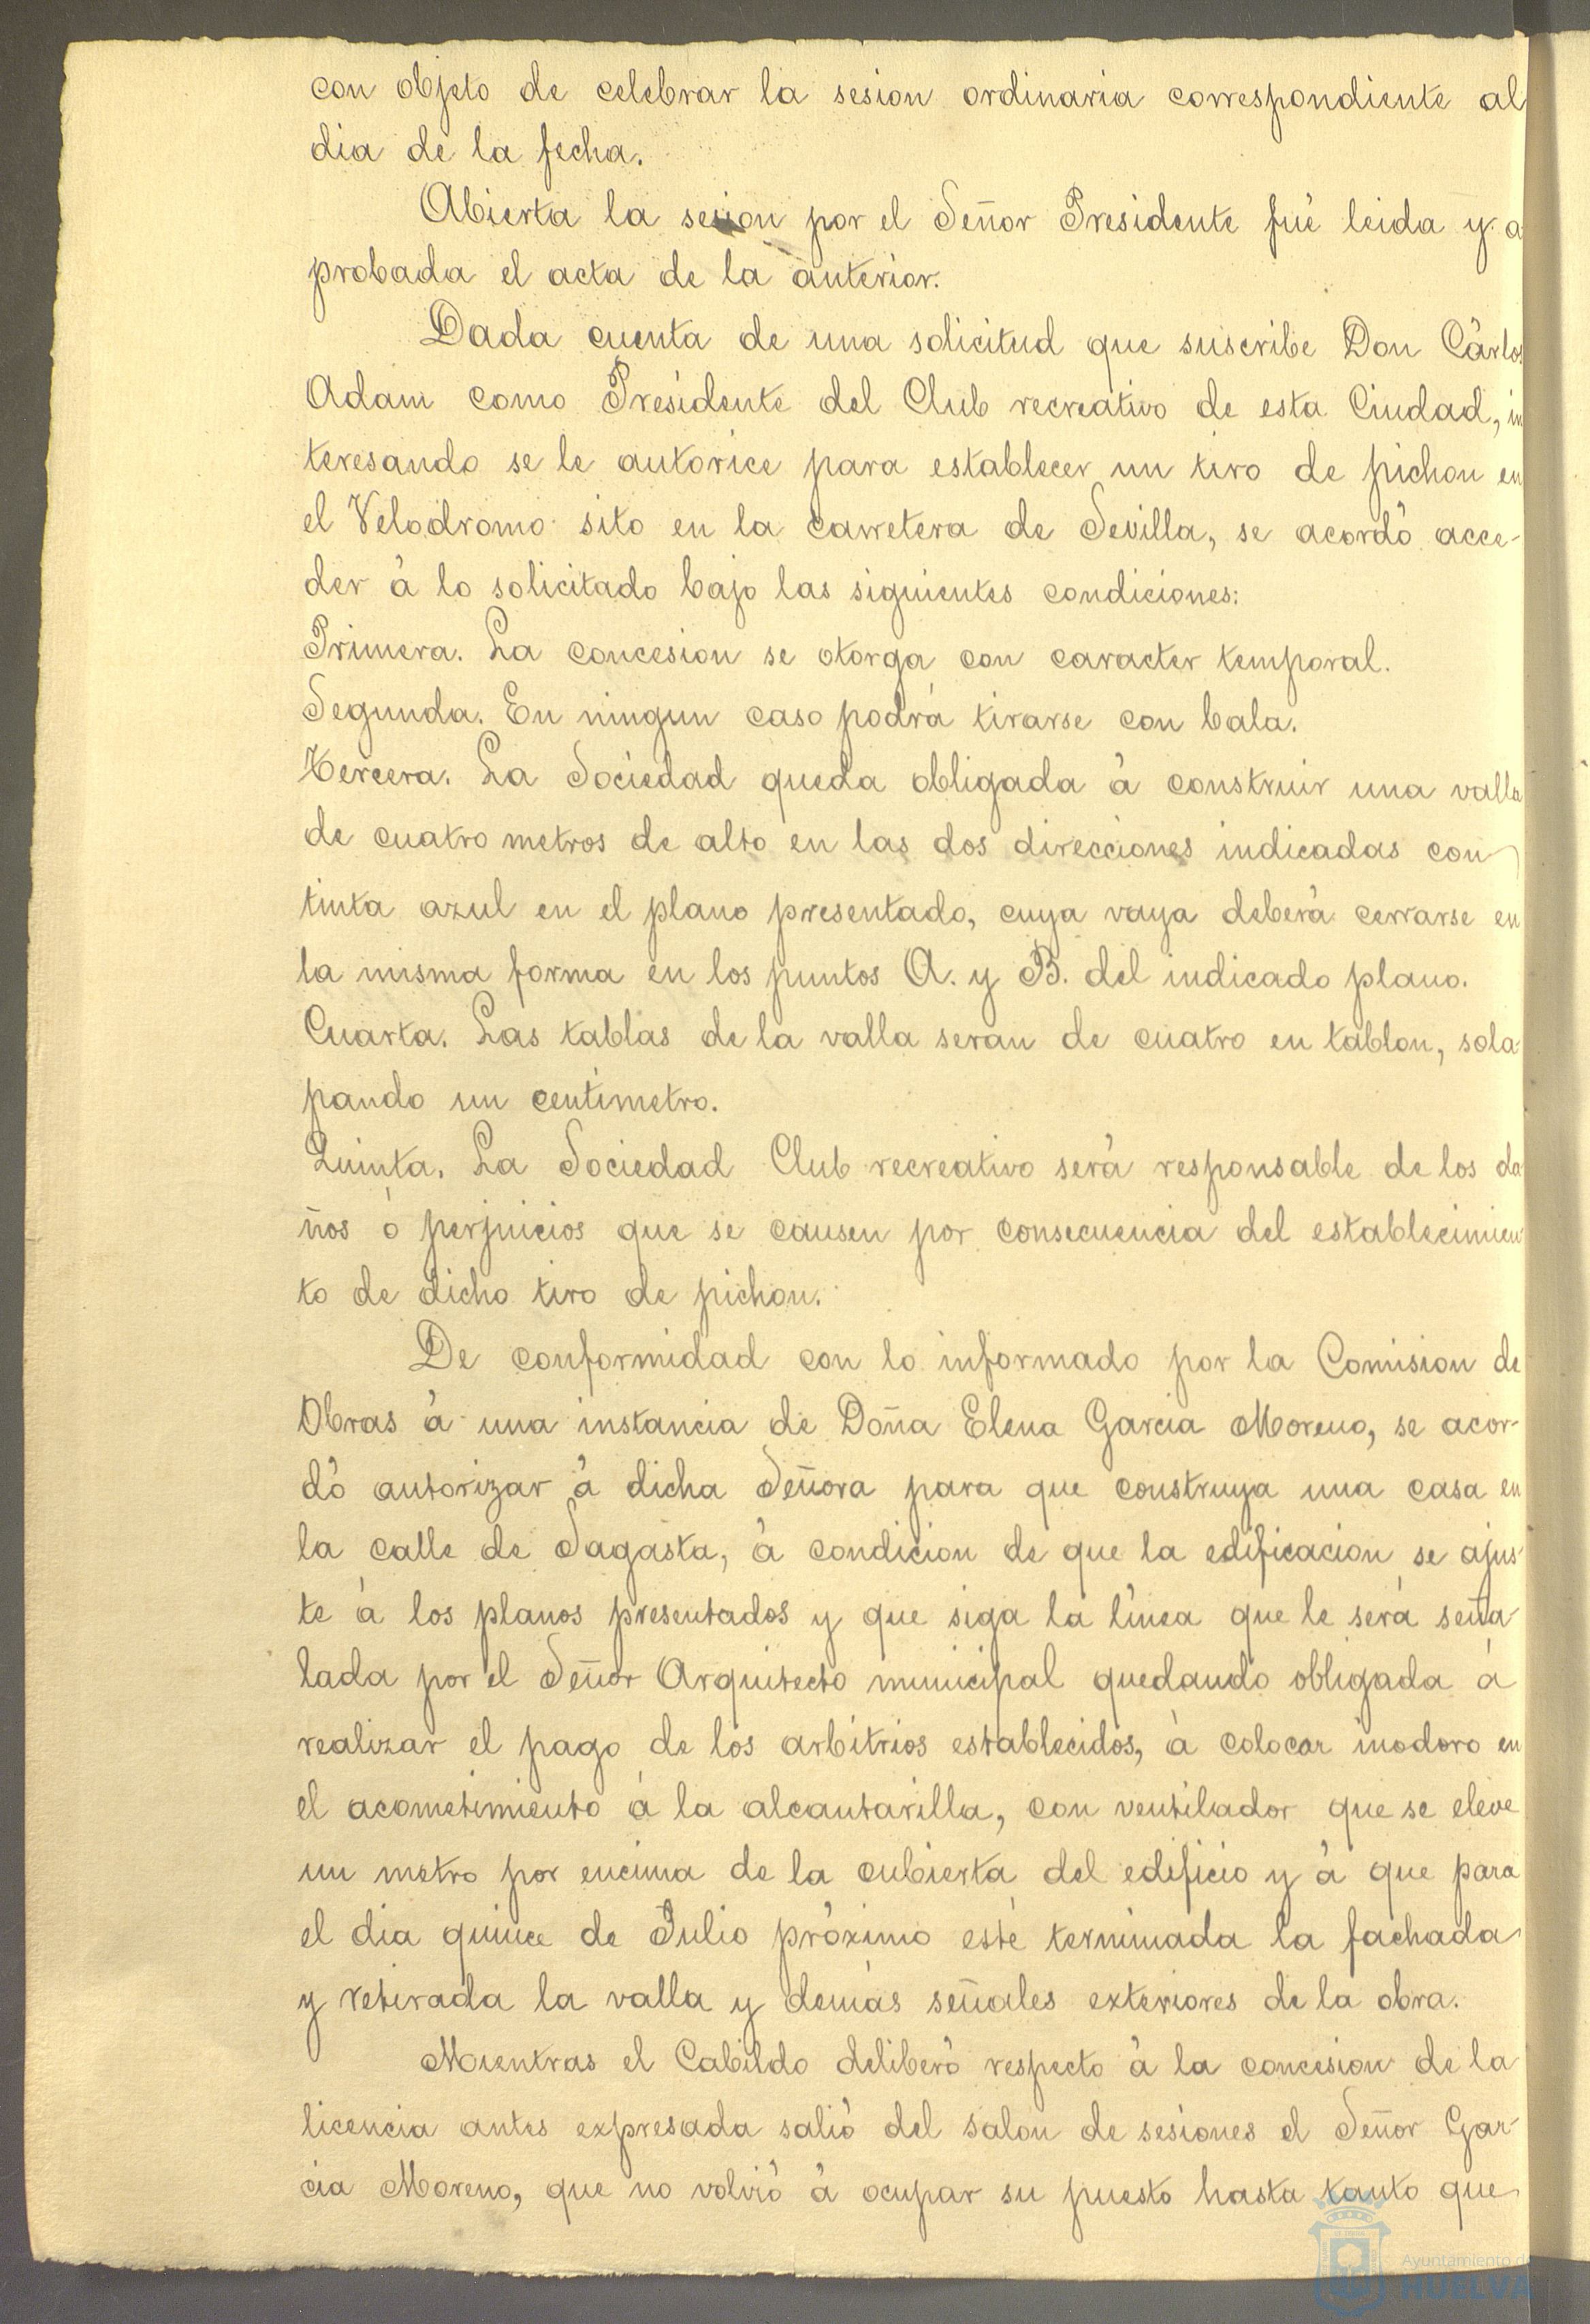 con objeto de celebrar la sesion ordinaria correspondiente al
dia de la fecha.
Abierta la sesion por el Señor Presidente fué leida y a
probada el acta de la anterior.
Dada cuenta de una solicitud que suscribe Don Cárlos
Adam como Presidente del Club recreativo de esta Ciudad, in
teresando se le autorice para establecer un tiro de pichon en
el Velodromo sito en la carretera de Sevilla, se acordó acce-
der á lo solicitado bajo las siguientes condiciones:
Primera. La concesion se otorga con caracter temporal.
Segunda. En ningun caso podrá tirarse con bala.
Tercera. La Sociedad queda obligada á construir una valla
de cuatro metros de alto en las dos direcciones indicadas con
tinta azul en el plano presentado, cuya vaya deberá cerrarse en
la misma forma en los puntos A. y B. del indicado plano.
Cuarta. Las tablas de la valla seran de cuatro en tablon, sola-
pando un centímetro.
Quinta. La Sociedad Club recreativo será responsable de los da
ños ó perjuicios que se causen por consecuencia del establecimien
to de dicho tiro de pichon.
De conformidad con lo informado por la Comision de
Obras á una instancia de Doña Elena Garcia Moreno, se acor-
dó autorizar á dicha Señora para que construya una casa en
la calle de Sagasta, á condicion de que la edificacion se ajus-
te á los planos presentados y que siga la línea que le será seña-
lada por el Señor Arquitecto municipal quedando obligada á
realizar el pago de los arbitrios establecidos, á colocar inodoro en
el acometimiento á la alcantarilla, con ventilador que se eleve
un metro por encima de la cubierta del edificio y á que para
el dia quince de Julio próximo esté terminada la fachada
y retirada la valla y demás señales exteriores de la obra.
Mientras el Cabildo deliberó respecto á la concesion de la
licencia antes expresada salió del salon de sesiones el Señor Gar-
cia Moreno, que no volvió á ocupar su puesto hasta tanto que
Ayuntamiento de
HUELVA